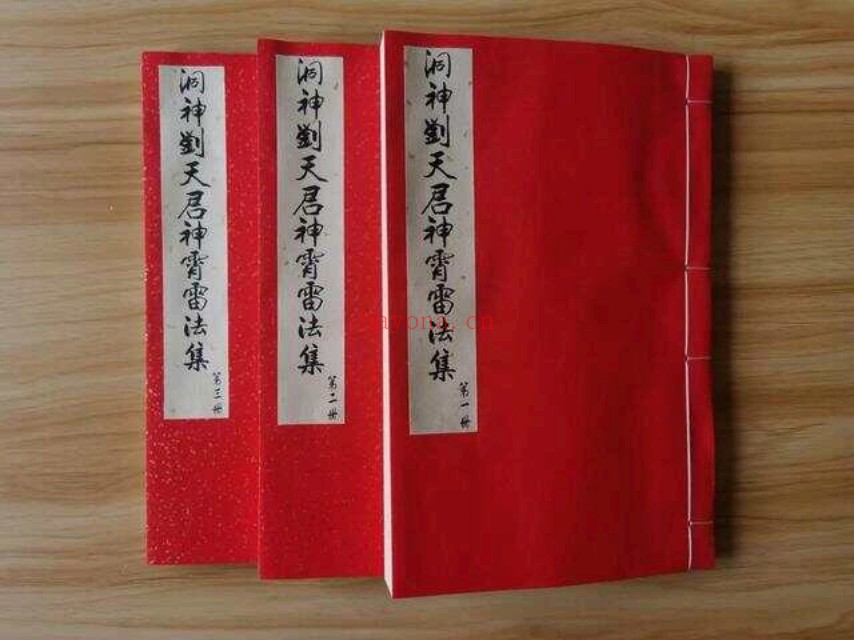 洞神劉天君神霄雷法集
第三冊
洞神劉天君神霄雷法集
第二冊
洞神劉天君神霄雷法集
第一冊